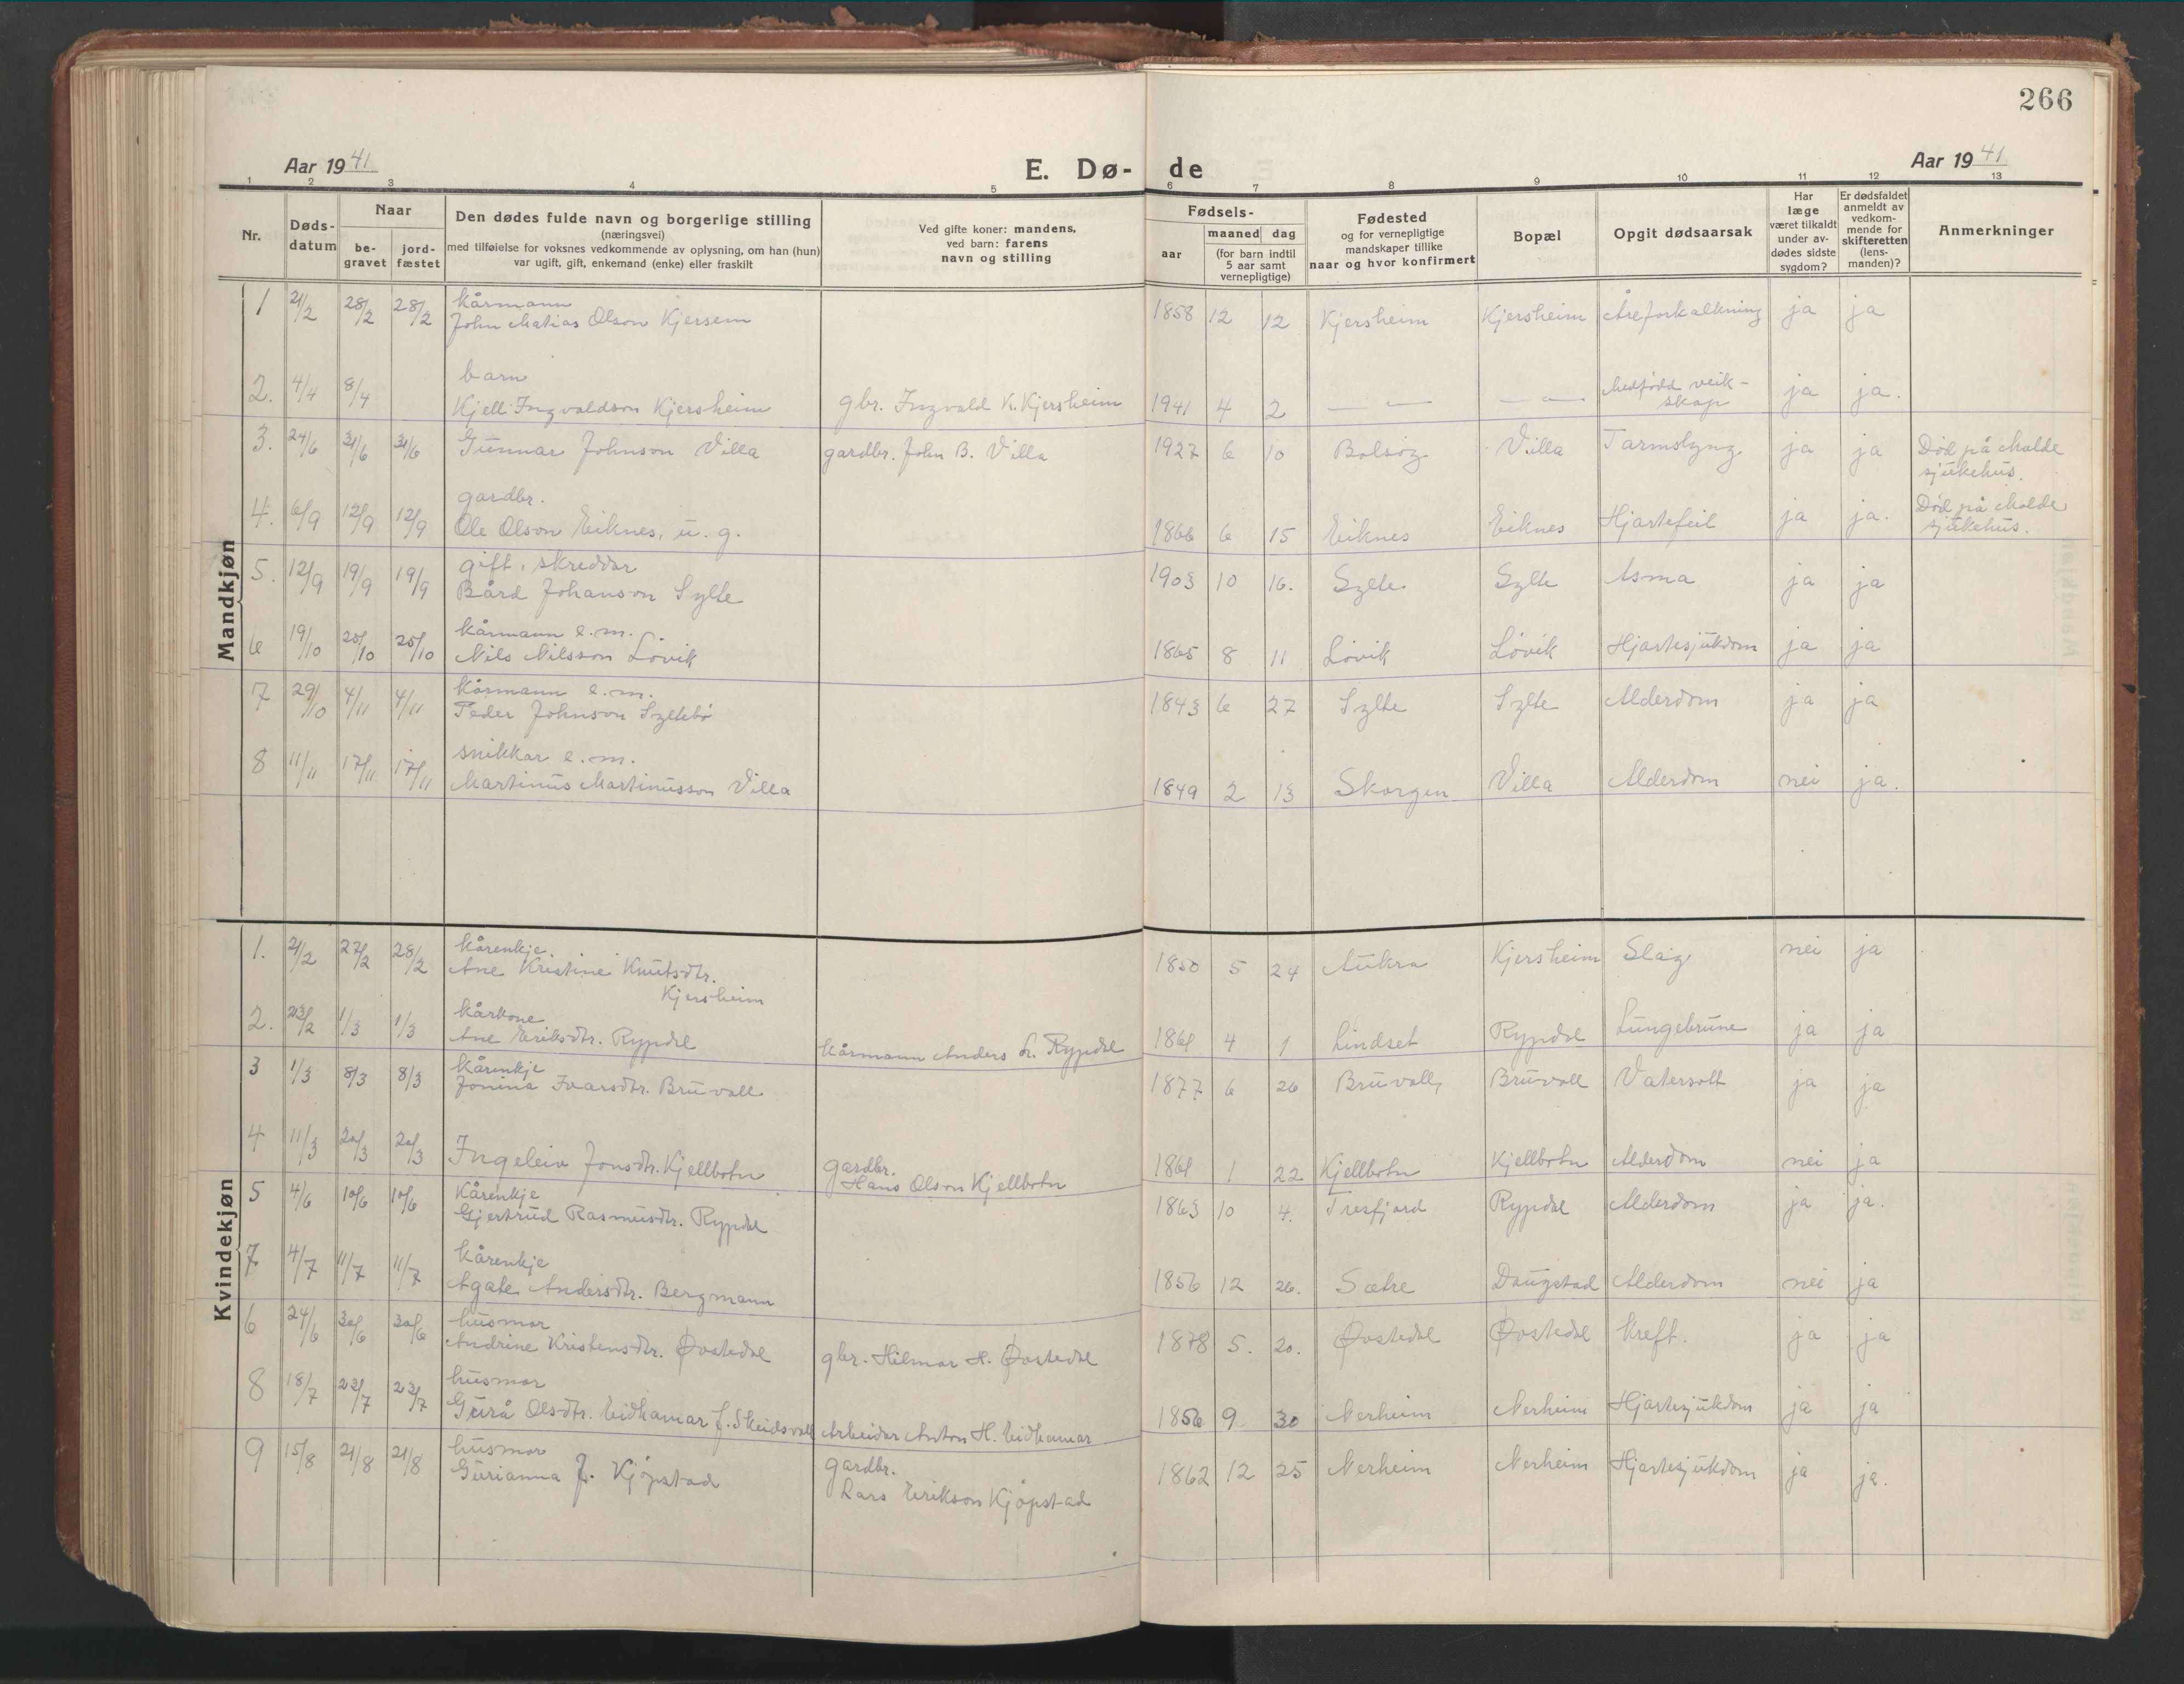 266
Aar 1941
E. Dø-
de
Aar 1941
1 2 3 4 5 6 7 8 9 10 11 12 13
Nr.
Døds-
datum
Naar
be-
gravet
jord-
fæstet
Den dødes fulde navn og borgerlige stilling
(næringsvei)
med tilføielse for voksnes vedkommende av oplysning, om han (hun)
var ugift, gift, enkemand (enke) eller fraskilt
Ved gifte koner: mandens,
ved barn: farens
navn og stilling
Fødsels-
aar
maaned dag
(for barn indtil
5 aar samt
vernepligtige)
Fødested
og for vernepligtige
mandskaper tillike
naar og hvor konfirmert
Bopæl
Opgit dødsaarsak
Har
læge
været tilkaldt
under av-
dødes sidste
sygdom?
Er dødsfaldet
anmeldt av
vedkom-
mende for
skifteretten
(lens-
manden)?
Anmerkninger
Mandkjøn
kårmann
1 21/2 28/2 28/2 John Matias Olson Kjersem 1858 12 12 Kjersheim Kjersheim Åreforkalkning ja ja
barn
2. 4/4 8/4 Kjell Ingvaldson Kjersheim gbr. Ingvald K. Kjersheim 1941 4 2 — " — — " — Medfødd veik-
skap ja ja.
3. 24/6 31/6 31/6 Gunnar Johnson Villa gardbr. John B. Villa 1927 6 10 Bolsøy Villa Tarmslyng ja ja Død på Molde
sjukehus.
gardbr.
4. 6/9 12/9 12/9 Ole Olson Eiknes, u. g. 1866 6 15 Eiknes Eiknes Hjartefeil ja ja. Død på Molde
sjukehus.
gift, skreddar
5. 12/9 19/9 19/9 Bård Johanson Sylte 1903 10 16. Sylte Sylte Asma ja ja
kårmann e.m.
6 19/10 25/10 25/10 Nils Nilsson Løvik 1865 8 11 Løvik Løvik Hjartesjukdom ja ja
kårmann e.m.
7 29/10 4/11 4/11 Peder Johnson Syltebø 1843 6 27 Sylte Sylte Alderdom ja ja
snikkar e.m.
8 11/11 17/11 17/11 Martinus Martinusson Villa 1849 2 13 Skorgen Villa Alderdom nei ja.
Kvindekjøn
kårenkje
1. 21/2 27/2 28/2 Ane Kristine Knutsdtr.
Kjersheim 1850 5 24 Aukra Kjersheim Slag nei ja
kårkone
2. 23/2 1/3 1/3 Ane Eriksdtr. Rypdal kårmann Anders L. Rypdal 1861 4 1 Lindset Rypdal Lungebrune ja ja
kårenkje
3 1/3 8/3 8/3 Jonina Ivarsdtr. Bruvoll 1877 6 26 Bruvoll, Bruvoll Vatersott ja ja
4 11/3 20/3 20/3 Ingeleiv Jonsdtr. Kjellbotn gardbr.
Hans Olson Kjellbotn 1861 1 22 Kjellbotn Kjellbotn Alderdom nei ja
kårenkje
5 4/6 10/6 10/6 Gjertrud Rasmusdtr. Rypdal 1863 10 4. Tresfjord Rypdal Alderdom ja ja.
kårenkje
7 4/7 11/7 11/7 Agate Andersdtr. Bergmann 1856 12 26. Sætre Daugstad Alderdom nei ja
husmor
6 24/6 30/6 30/6 Andrine Kristensdtr. Øvstedal gbr. Hilmar H. Øvstedal 1878 5. 20. Øvstedal Øvstedal kreft. ja ja
husmor
8 18/7 23/7 23/7 Gurå Olsdtr. Eidhamar f. Skeidsvoll Arbeidar Anton H. Eidhamar 1856 9 30 Nerheim Nerheim Hjartesjukdom ja ja
husmor
9 15/8 21/8 21/8 Gurianna J. Kjøpstad gardbr.
Lars Erikson Kjøpstad 1862 12 25 Nerheim Nerheim Hjartesjukdom ja ja.